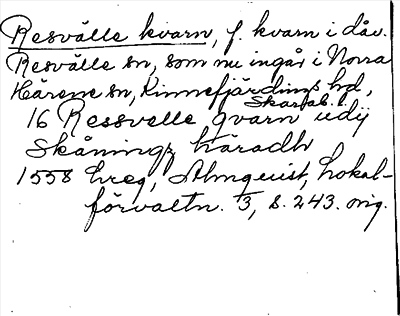 Resvälle kvarn, f. kvarn i dåv.
Resvälle sn, som nu ingår i Norra
Härene sn, Kinnefjärdings hd,
Skarab. l.
16 Ressvelle qvarn udij
Skåningz häradh
1558 hreg, Almquist, Lokal-
förvaltn. 3, s. 243. mg.